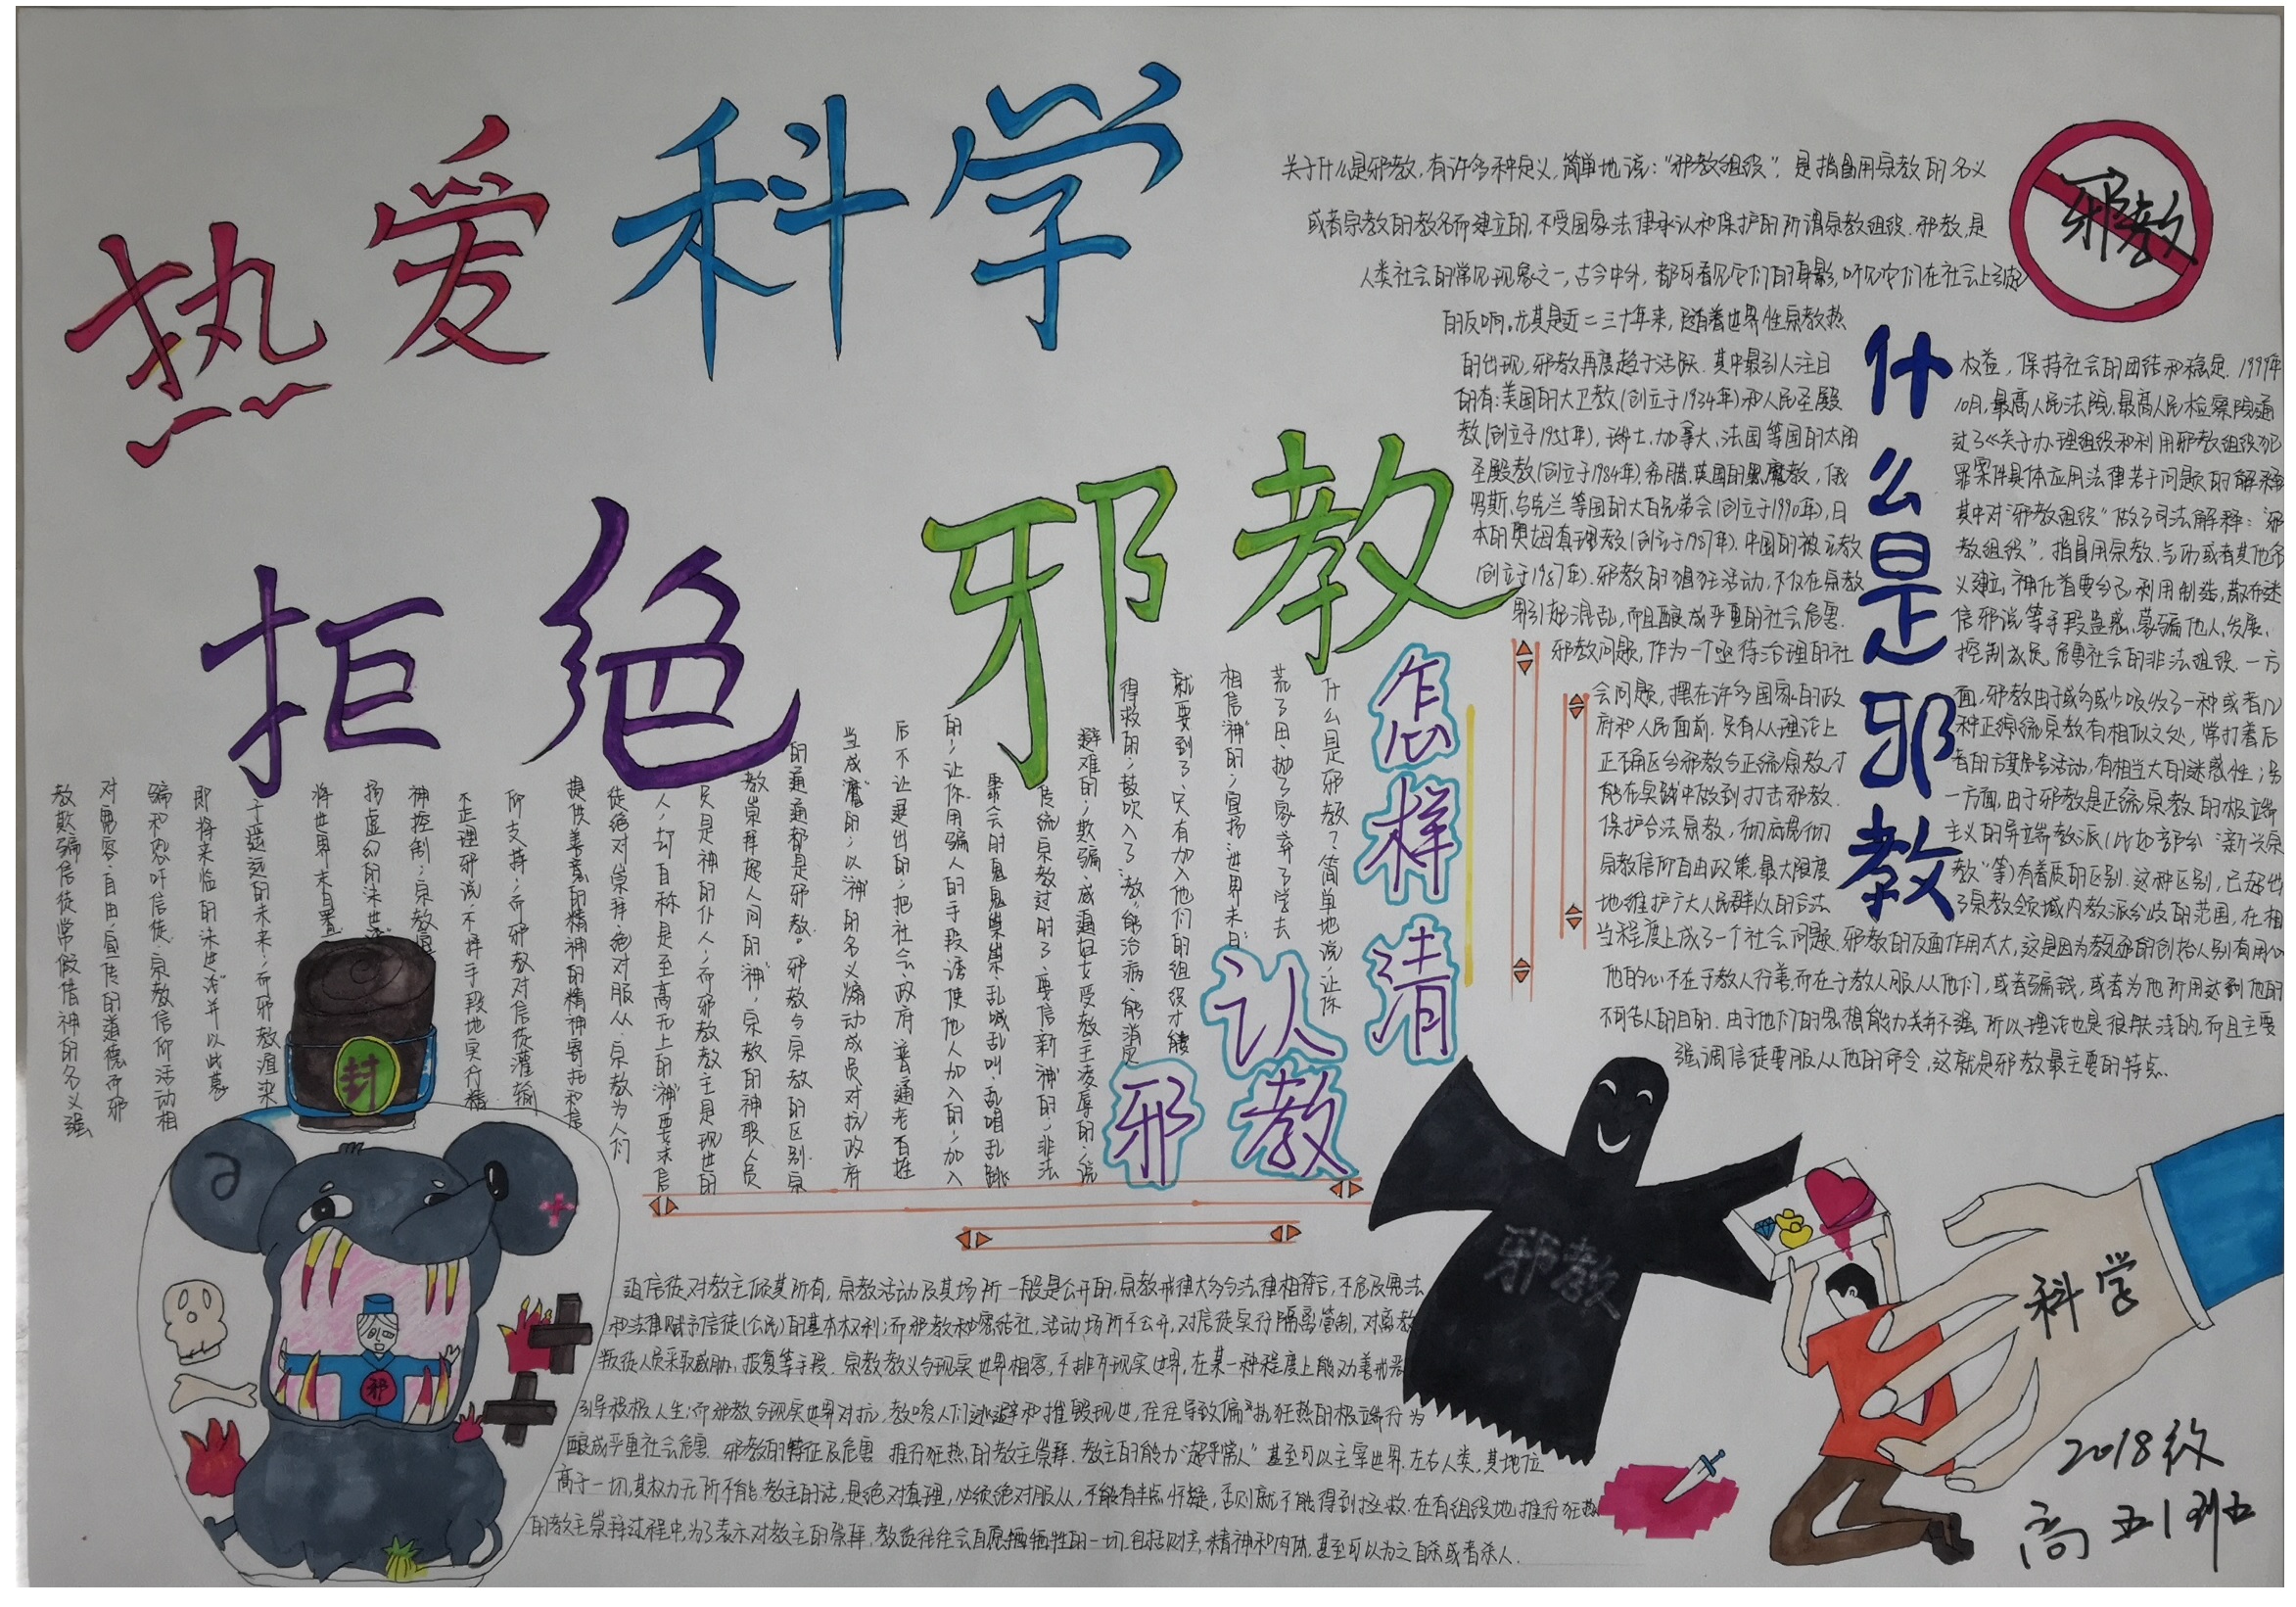 热爱科学
拒绝邪教
邪教
什么是邪教
关于什么是邪教,有许多种定义,简单地说:“邪教组织”,是指冒用宗教的名义
或者宗教的教名而建立的,不受国家法律承认和保护的所谓宗教组织.邪教,是
人类社会的常见现象之一,古今中外,都可看见它们的身影,听见它们在社会上引起
的反响。尤其是近二三十年来,随着世界性宗教热
的出现,邪教再度趋于活跃.其中最引人注目
的有:美国的大卫教(创立于1934年)和人民圣殿
教(创立于1955年),瑞士、加拿大、法国等国的太阳
圣殿教(创立于1984年),希腊、英国的黑魔教,俄
罗斯、乌克兰等国的大白兄弟会(创立于1990年),日
本的奥姆真理教(创立于1987年).中国的被立教
(创立于1987年).邪教的猖狂活动,不仅在宗教
界引起混乱,而且酿成严重的社会危害.
邪教问题,作为一个亟待治理的社
会问题,摆在许多国家的政
府和人民面前.只有从理论上
正确区分邪教与正统宗教,才
能在实践中做到打击邪教.
保护合法宗教,彻底贯彻
宗教信仰自由政策,最大限度
地维护广大人民群众的合法
权益,保持社会的团结和稳定.1999年
10月,最高人民法院、最高人民检察院通
过了《关于办理组织和利用邪教组织犯
罪案件具体应用法律若干问题的解释
其中对“邪教组织”做了司法解释:“邪
教组织”,指冒用宗教、气功或者其他名
义建立,神化首要分子,利用制造,散布迷
信邪说等手段蛊惑、蒙骗他人,发展、
控制成员,危害社会的非法组织.一方
面,邪教由于或多或少吸收了一种或者几
种正统宗教有相似之处,常打着后
者的方旗号活动,有相当大的迷惑性;另
一方面,由于邪教是正统宗教的极端
主义的异端教派(比如部分“新兴宗
教”等)有着质的区别.这种区别,已超出
了宗教领域内教派分歧的范围,在相
当程度上成了一个社会问题.邪教的反面作用太大,这是因为教派的创始人别有用心
他的心不在于教人行善,而在于教人服从他们,或者骗钱,或者为他所用达到他的
不可告人的目的.由于他们的思想能力并不强,所以理论也是很肤浅的,而且主要
强调信徒要服从他的命令,这就是邪教最主要的特点.
怎样清
认
邪教
什么是邪教?简单地说,让你
荒了田、抛了家、弃了学去
相信“神”的;宣扬“世界末日”
就要到了,只有加入他们的组织才能
得救的;鼓吹入了“教”能治病、能消灾
避难的;欺骗、威逼妇女受教主凌辱的;说
传统宗教过时了,要信新“神”的;非法
聚会时鬼鬼祟祟、乱喊乱叫、乱唱乱跳
的;让你用骗人的手段诱使他人加入的;加入
后不让退出的;把社会、政府、普通老百姓
当成“魔”的;以“神”的名义煽动成员对抗政府
的通通都是邪教。邪教与宗教的区别:宗
教崇拜超人间的“神”,宗教的神职人员
只是神的仆人;而邪教教主是现世的
人,却自称是至高无上的“神”要求信
徒绝对崇拜、绝对服从.宗教为人们
提供善意的精神的精神寄托和信
仰支持;而邪教对信徒灌输
歪理邪说,不择手段地实行精
神控制;宗教
扬虚幻的未世
将世界末日置
于遥远的未来;而邪教渲染
即将来临的末世论并以此蒙
骗和恐吓信徒.宗教信仰活动相
对宽容、自由,宣传的道德而邪
教欺骗信徒常假借神的名义强
迫信徒对教主倾其所有,宗教活动及其场所一般是公开的,宗教戒律大多与法律相符合,不危及宪法
和法律赋予信徒(公民)的基本权利;而邪教秘密结社,活动场所不公开,对信徒实行隔离管制,对离教
叛徒人员采取威胁、报复等手段.宗教教义与现实世界相容,不排斥现实世界,在某一种程度上能劝善戒恶
引导积极人生;而邪教与现实世界对抗,教唆人们逃避和摧毁现世,往往导致偏执狂热的极端行为
酿成严重社会危害.邪教的特征及危害 推行狂热的教主崇拜.教主的能力“超乎常人”甚至可以主宰世界.左右人类,其地位
高于一切,其权力无所不能.教主的话,是绝对真理,必须绝对服从,不能有半点怀疑,否则就不能得到拯救.在有组织地推行狂热
的教主崇拜过程中,为了表示对教主的崇拜,教徒往往会自愿牺牲的一切.包括财夫,精神和肉体.甚至可以为之自杀或者杀人.
封
邪
邪教
科学
2018级
高五1班